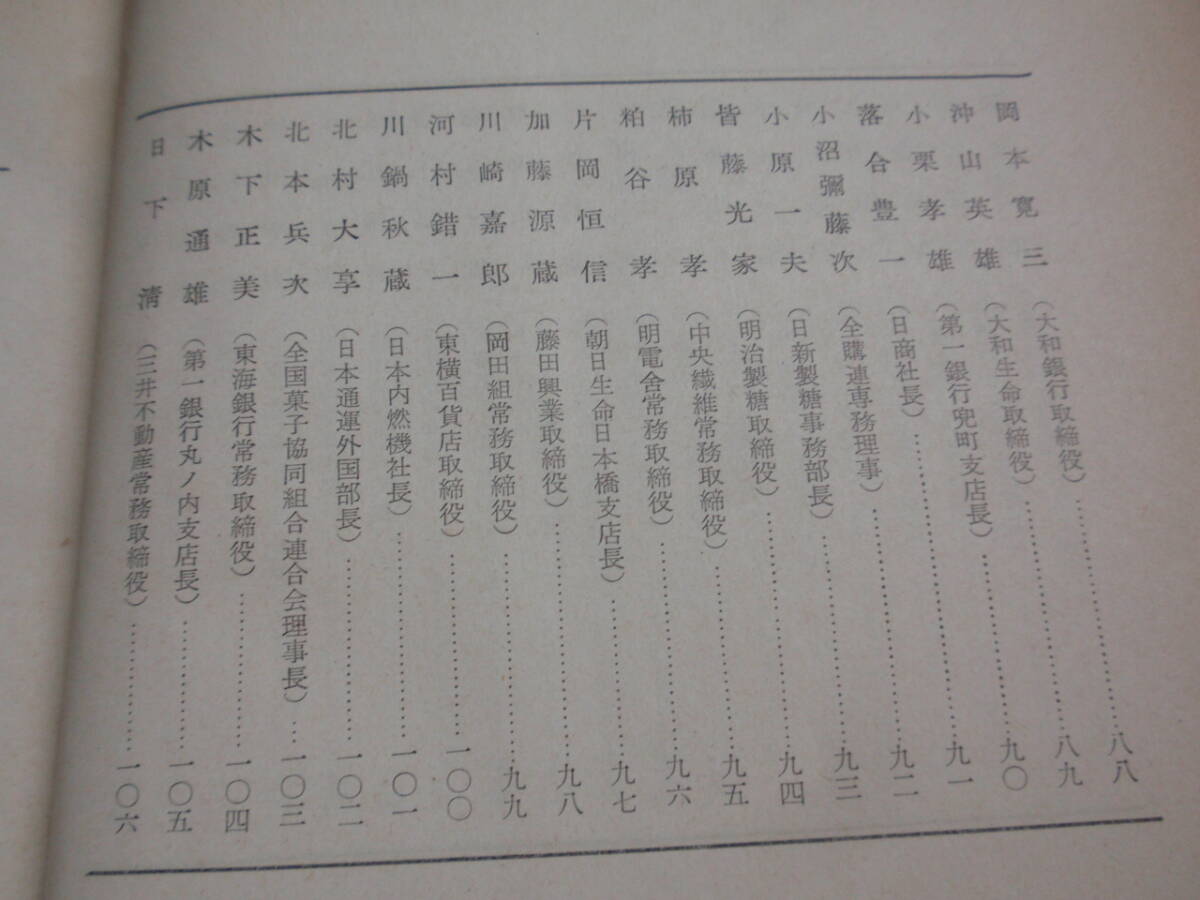 岡本寛三（大和銀行取締役）……………八八
沖山英雄（大和生命取締役）……………八九
小栗孝雄（第一銀行兜町支店長）……………九〇
落合豊一（日商社長）……………九一
小沼彌藤次（全購連専務理事）……………九二
小原一夫（日新製糖事務部長）……………九三
皆藤光家（明治製糖取締役）……………九四
柿原孝（中央繊維常務取締役）……………九五
粕谷孝（明電舎常務取締役）……………九六
片岡恒信（朝日生命日本橋支店長）……………九七
加藤源蔵（藤田興業取締役）……………九八
川崎嘉郎（岡田組常務取締役）……………九九
河村錯一（東横百貨店取締役）……………一〇〇
川鍋秋蔵（日本内燃機社長）……………一〇一
北村大享（日本通運外国部長）……………一〇二
北本兵次（全国菓子協同組合連合会理事長）…一〇三
木下正美（東海銀行常務取締役）……………一〇四
木原通雄（第一銀行丸ノ内支店長）……………一〇五
日下清（三井不動産常務取締役）……………一〇六